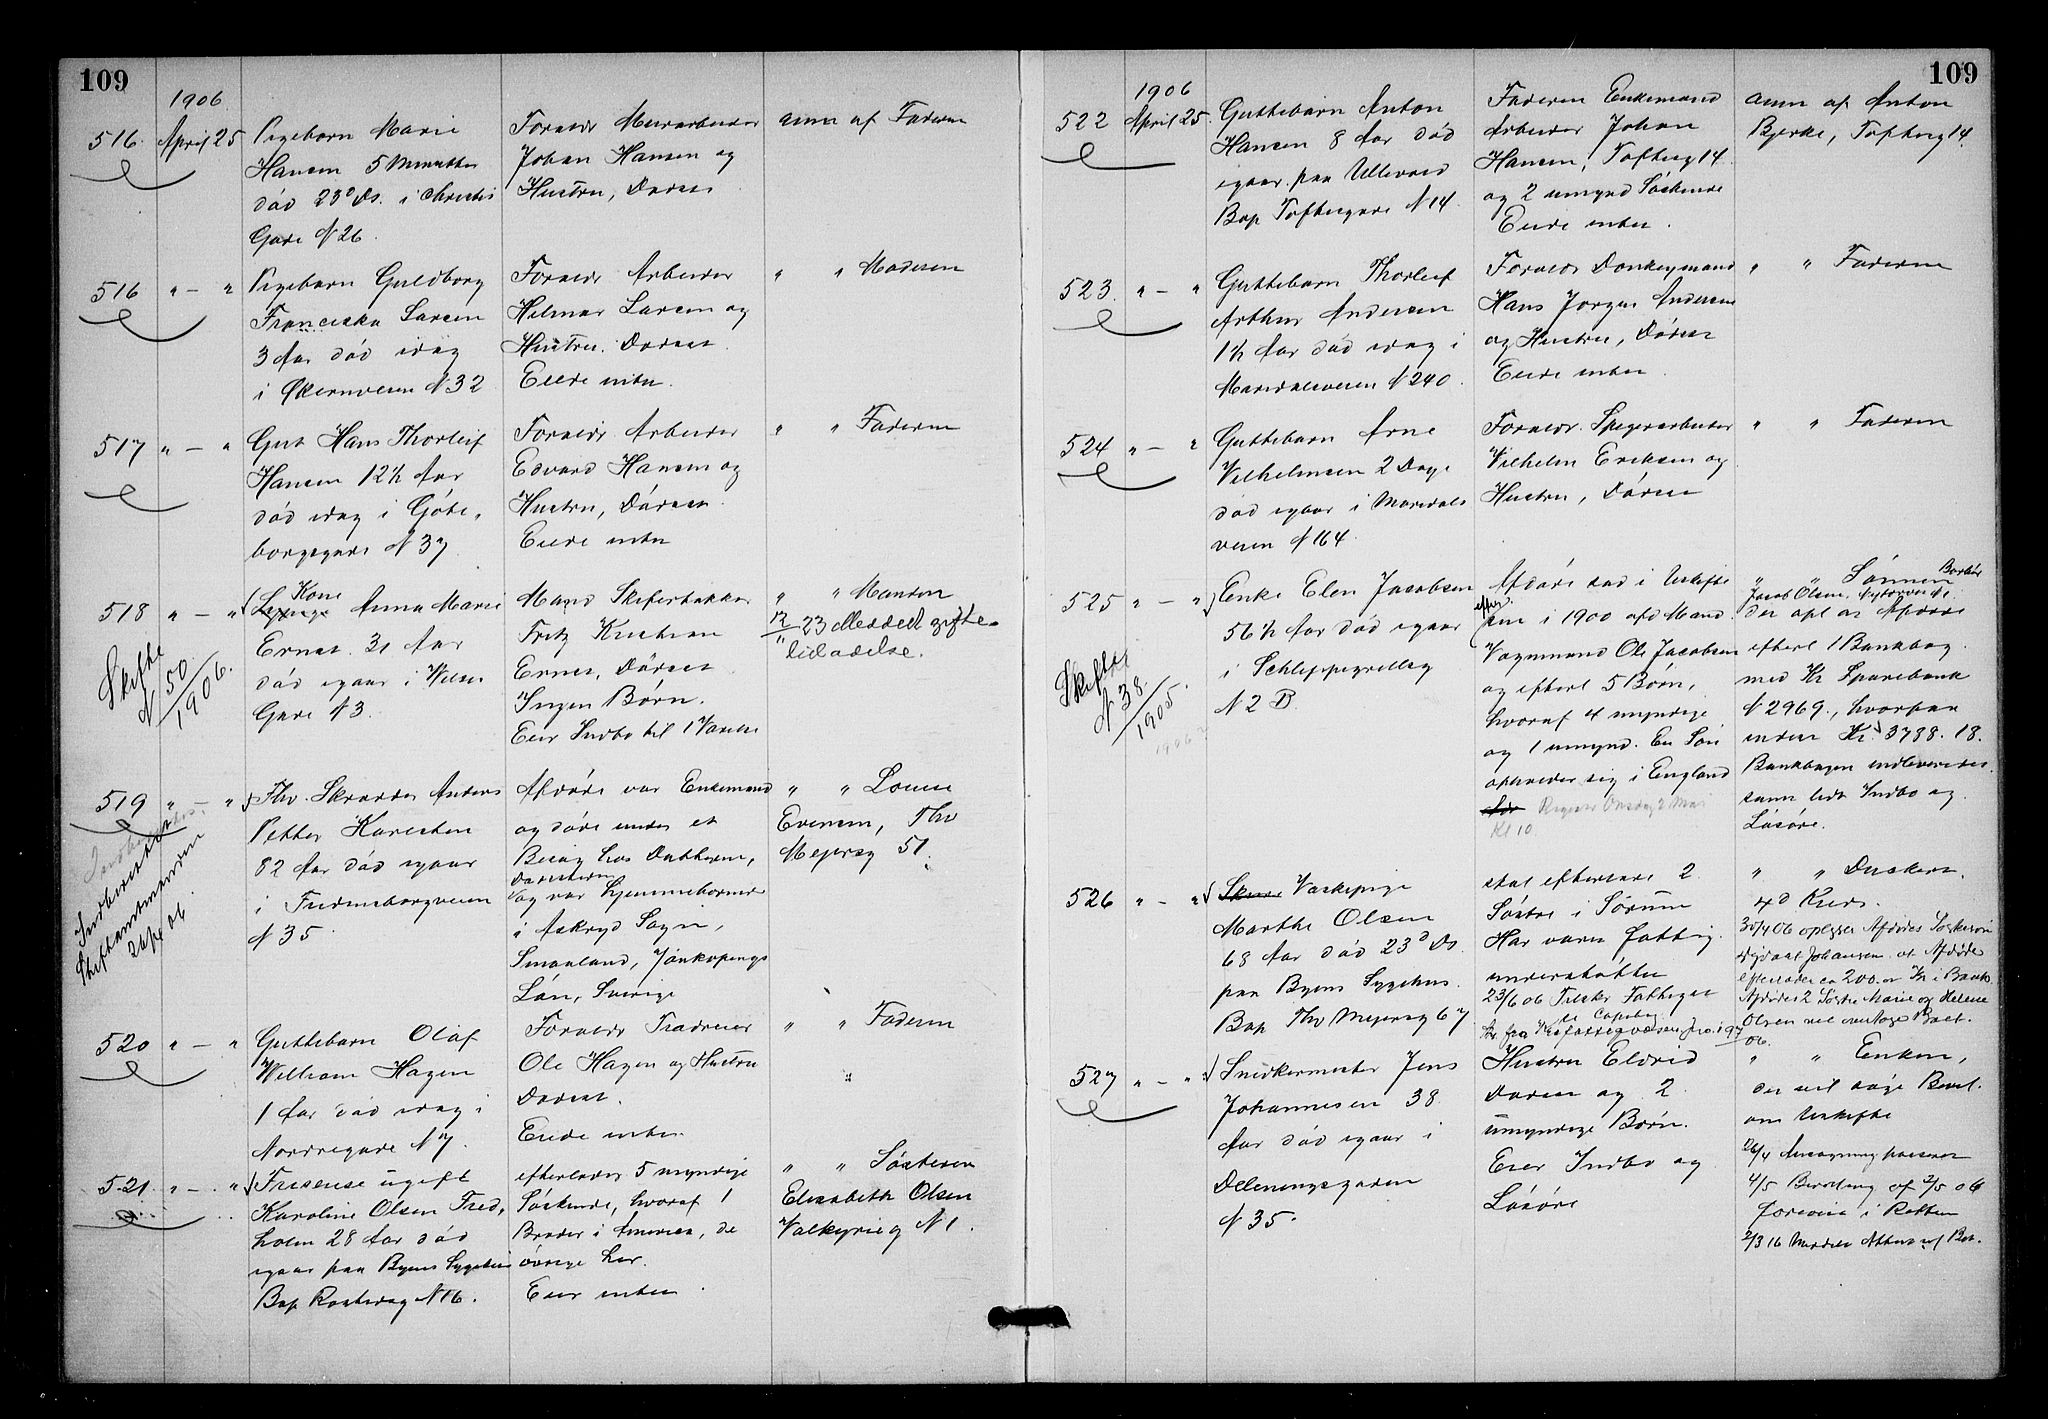 109
1906
516. April 25 Pigebarn Marie
Hansen 5 Maaneder
død 23d Ds. i Christies
Gade N 26.
Forældr Murarbeider
Johan Hansen og
Hustru, Døress
anm af Faderen
516 " — " Pigebarn Guldborg
Franciska Larsen
3 Aar død idag
i Økernveien N 32
Forældr Arbeider
Helmar Larsen og
Hustru. Døress
Eiede intet.
" " Moderen
517 " — " Gut Hans Thorleif
Hansen 12½ Aar
død idag i Göte-
borggade N 37
Forældr Arbeider
Edvard Hansen og
Hustru, Døress
Eiede intet
" " Faderen
518 " — " Kone
Anna Marie
Ernes. 31 Aar
død igaar i
Gade N 3.
Skifte
N 50
1906.
Mand
Fritz Kristian
Ernes, Døress
Ingen Børn.
Eier Indbo til
" " Manden
12/" 23 Meddelt gifte-
tilladelse.
519 " — " Fhv. Skrædder Anders
Petter Karlsten
82 Aar død igaar
i Fredensborgveien
N 35
Indberettet
Stiftamtmanden
26/4 06.
Afdøde var Enkemand
og døde under et
Besøg hos Datteren,
og var hjemmehørende
i Askryd Sogn,
Smaaland, Jönköpings
Län, Sverige
" " Louise
Evensen, Thv
Meyersg 51.
520 " — " Guttebarn Olaf
William Hagen
1 Aar død idag i
Nordregade N 7.
Forældr
Ole Hagen og Hustru
Døress.
Eiede intet.
" " Faderen
521. " — " Frøken ugift
Karoline Olsen Fred-
holm 28 Aar død
igaar paa Byens Sygehus
Bop Rostedsg N 16.
efterlader 5 myndige
Søskende, hvoraf 1
Broder i Amerika, de
øvrige her.
Eier intet.
" " Søsteren
Elisabeth Olsen
Valkyrieg N 1.
109
1906
522 April 25. Guttebarn Anton
Hansen 8 Aar død
igaar paa Ullevaal
Bop Toftesgade N 14.
Faderen Enkemand
Arbeider Johan
Hansen, Toftesg 14.
og 2 umynd Søskende
Eiede intet.
anm af Anton
Bjerke, Toftesg 14.
523. " — " Guttebarn Thorleif
Arthur Andersen
1½ Aar død idag i
Maridalsveien N 240.
Forældr Donkeymand
Hans Jørgen Andersen
og Hustru, Døress
Eiede intet
" " Faderen
524 " — " Guttebarn Arne
Vilhelmsen 2 Dage
død igaar i Maridals
veien N 164.
Forældr. Spigerarbeider
Vilhelm Eriksen og
Hustru, Døress
" " Faderen
525 " — " Enke Elen Jacobsen
56½ Aar død igaar
i Schleppegrellsg
N 2 B.
Skifte
N 38.
1905.
1906?
Afdøde sad i Uskifte
efter sin i 1900 afd Mand
Vognmand Ole Jacobsen
og efterl 5 Børn,
hvoraf 4 myndige
og 1 umynd. En Søn
opholder sig i England
Onsdag 2 Mai
Kl 10.
" " Sønnen
Jacob Olsen,
der opl at Afdøde
efterl 1 Bankbog
med Kr Sparebank
N 2969., hvorpaa
indest Kr. 3788. 18.
Bankbogen indleveredes
samt lidt Indbo og
Løsøre.
526 " — " Vaskepige
Marthe Olsen
68 Aar død 23d Ds
paa Byens Sygehus.
Bop Thv Meyersg 67
skal efterlade 2
Søstre i Sørum
Har været fattig
understøttet
23/6 06
" " Diskon.
4d Kreds.
30/4 06 oplyser Afdødes Søskendebarn
Johansen at Afdøde
efterlader ca 200. - Kr i Bank.
Afdødes 2 Søstre Marie og Helene
Olsen vil overtage Boet.
527 " — " Snedkermester Jens
Johannesen 38
Aar død igaar i
Deleneggaden
N 35.
Hustru Eldrid
Døress og 2
umyndige Børn.
Eier Indbo og
Løsøre
" " Enken,
der vil søge Bevil.
om Uskifte
26/4 Ansøgning passeret
4/5 Bevilling af 2/5 06
foreviist i Retten